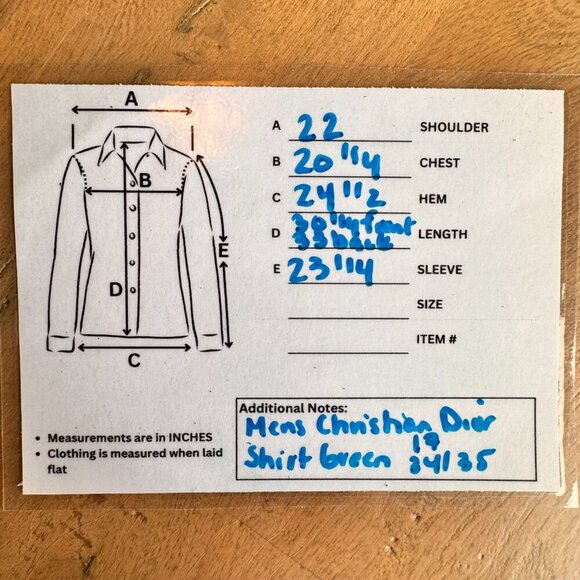 A
B
E
D
C
A 22 SHOULDER
B 20 1/4 CHEST
C 24 1/2 HEM
D 30 1/4 front 33 back LENGTH
E 23 1/4 SLEEVE
SIZE
ITEM #
Measurements are in INCHES
Clothing is measured when laid
flat
Additional Notes:
Mens Christian Dior
Shirt Green 34/35